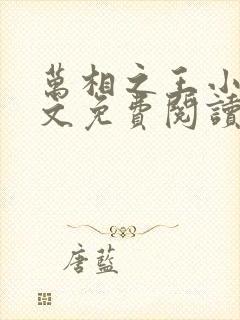 萬相之王小
文免費閱讀
唐藍